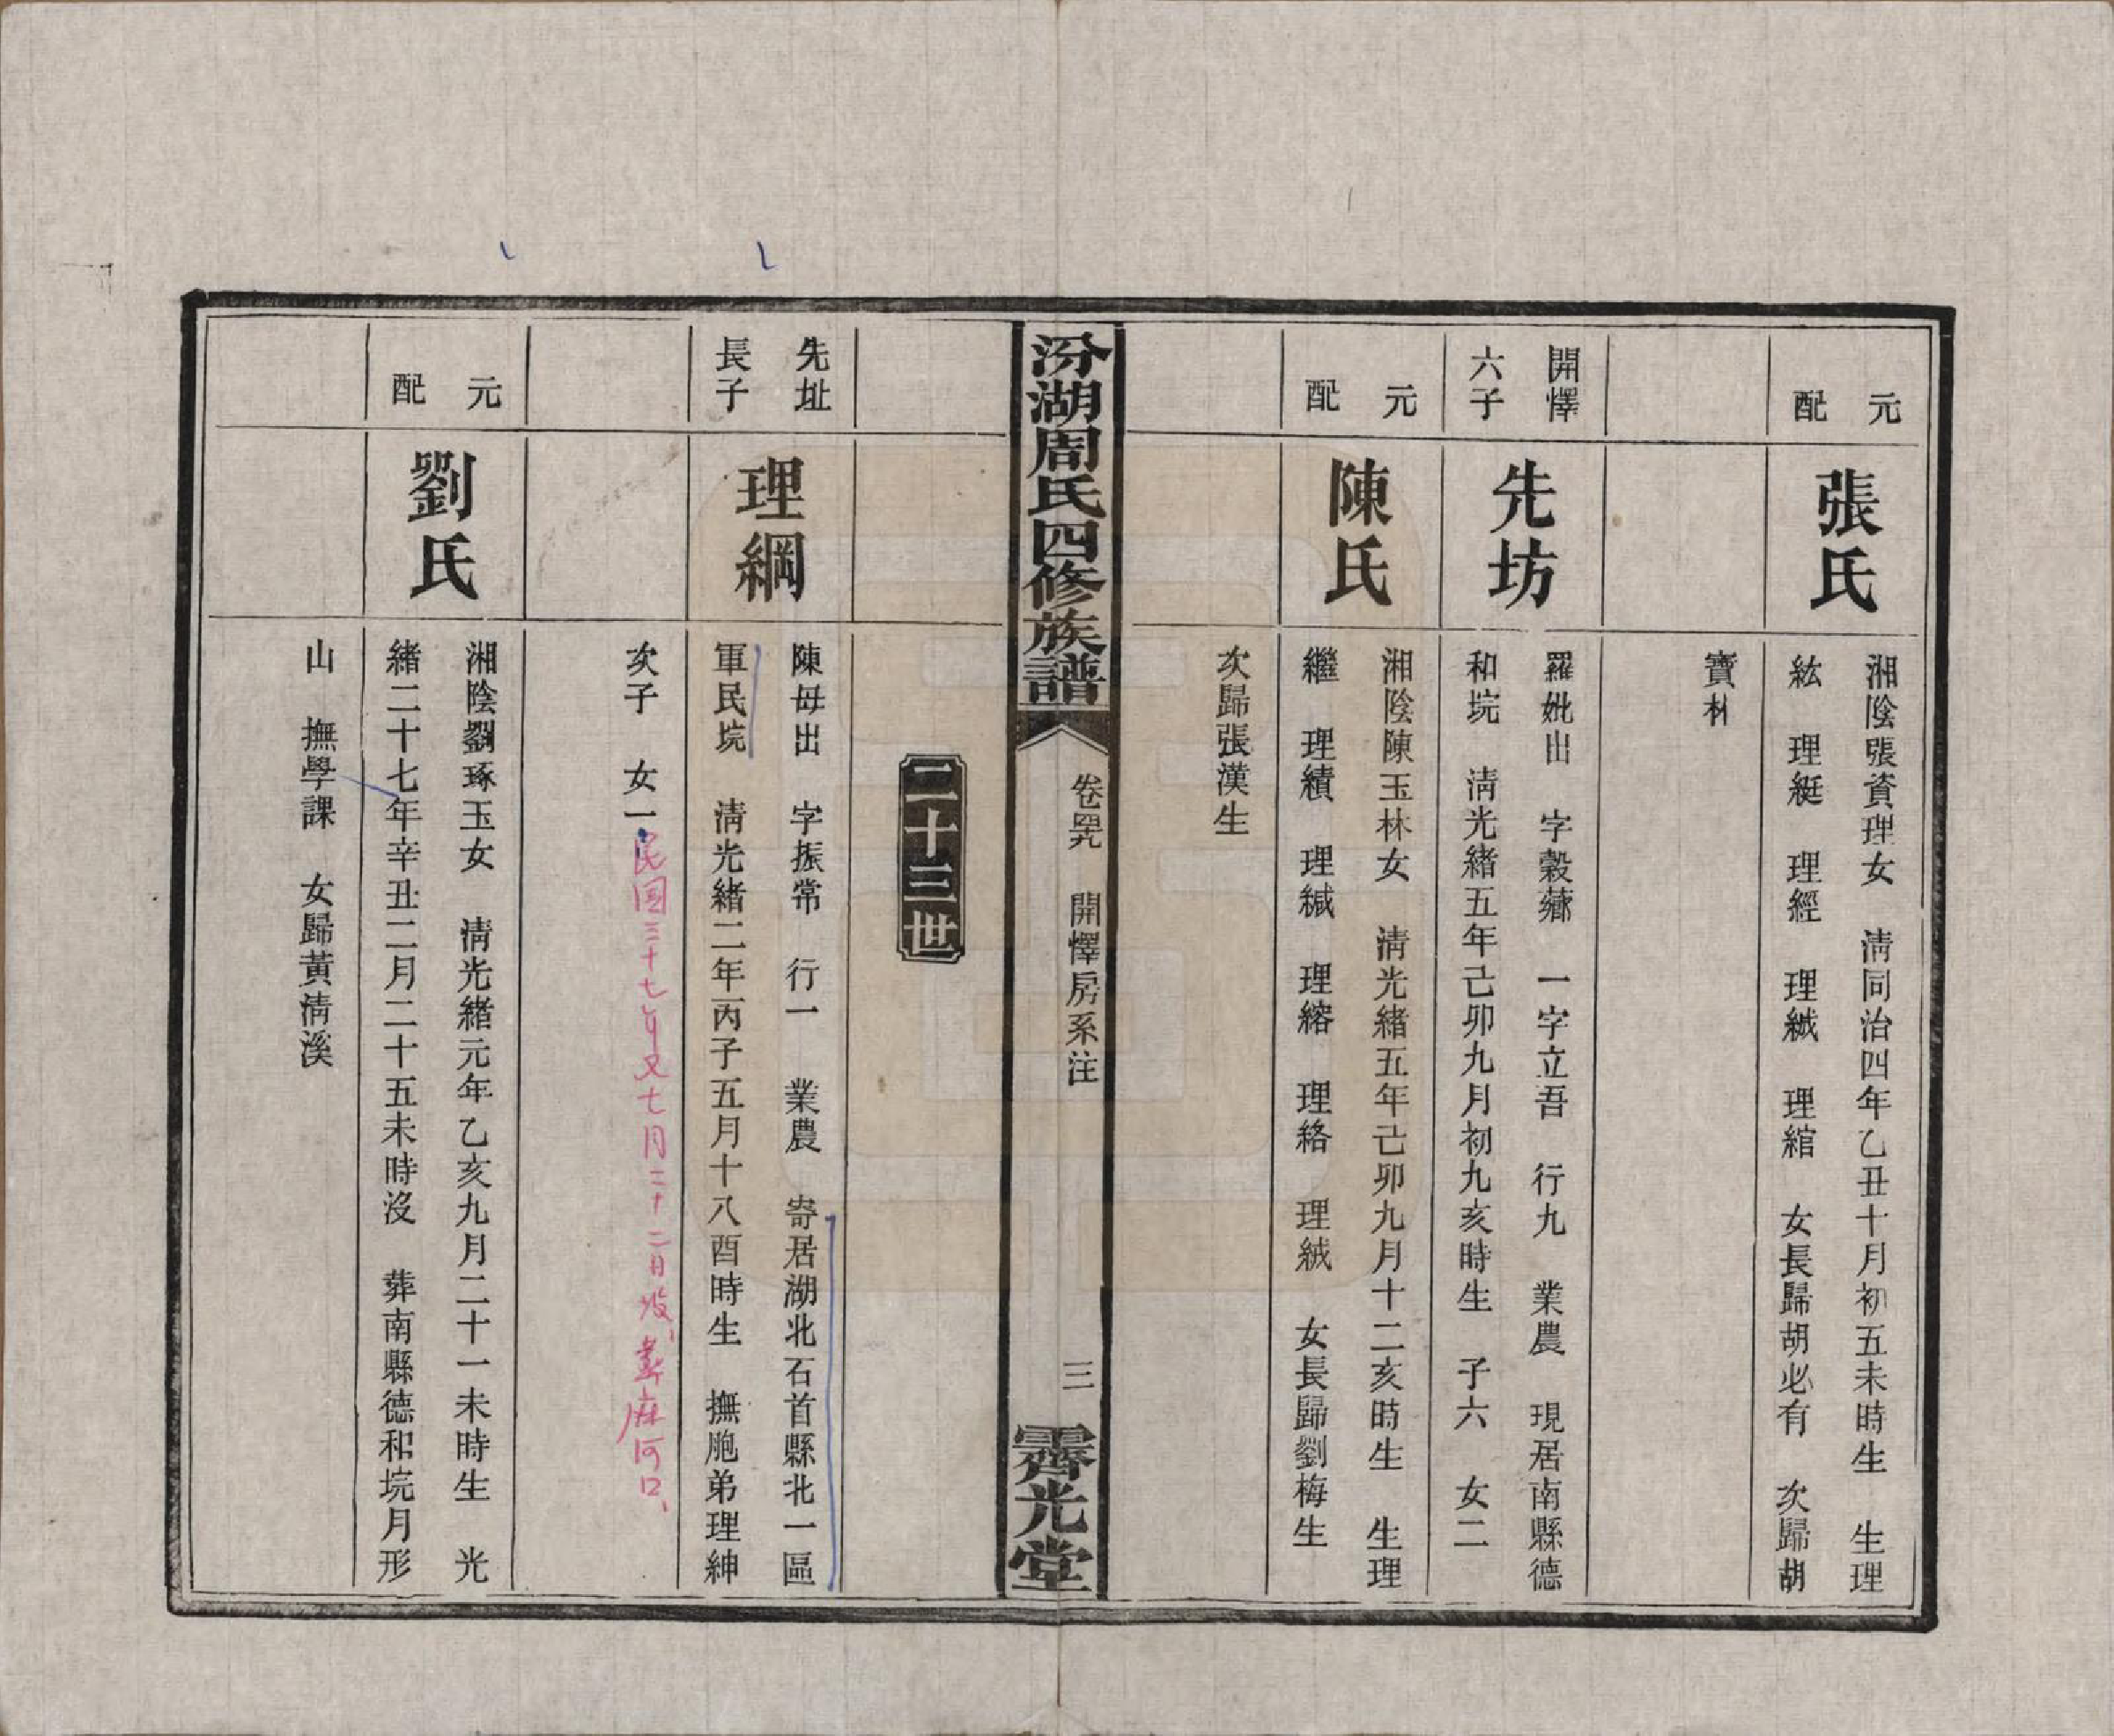 元配
張氏
湘陰張資理女　清同治四年乙丑十月初五未時生　生理
紘　理綎　理經　理緎　理綰　女長歸胡必有　次歸胡
寶林
開懌
六子
先坊
羅妣出　字穀薌　一字立吾　行九　業農　現居南縣德
和垸　清光緒五年己卯九月初九亥時生　子六　女二
元配
陳氏
湘陰陳玉林女　清光緒五年己卯九月十二亥時生　生理
繼　理績　理緘　理縚　理絡　理絨　女長歸劉梅生
次歸張漢生
汾湖周氏四修族譜
卷罕九　開懌房系注
三
霽光堂
二十三世
先址
長子
理綱
陳毋出　字振常　行一　業農　寄居湖北石首縣北一區
軍民垸　清光緒二年丙子五月十八酉時生　撫胞弟理紳
次子　女一
民国三十七年又七月二十二日歿、葬麻河口、
元配
劉氏
湘陰劉琢玉女　清光緒元年乙亥九月二十一未時生　光
緒二十七年辛丑二月二十五未時沒　葬南縣德和垸月形
山　撫學課　女歸黃清溪